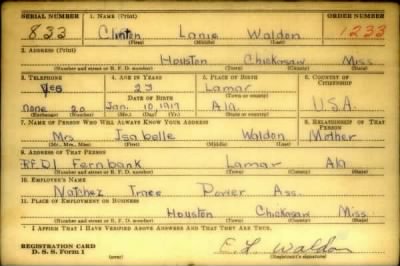 SERIAL NUMBER 1. NAME (Print) ORDER NUMBER
833 Clinton Lanie Waldon 1233
(First) (Middle) (Last)
2. ADDRESS (Print)
Houston Chickasaw Miss
(Number and street or R. F. D. number) (Town) (County) (State)
3. TELEPHONE 4. AGE IN YEARS 5. PLACE OF BIRTH 6. COUNTRY OF CITIZENSHIP
Yes 23 Lamar
(Town or county)
DATE OF BIRTH
none 20 Jan. 10, 1917 Ala U.S.A.
(Exchange) (Number) (Mo.) (Day) (Yr.) (State or country)
7. NAME OF PERSON WHO WILL ALWAYS KNOW YOUR ADDRESS 8. RELATIONSHIP OF THAT PERSON
Mrs Isabelle Waldon Mother
(Mr., Mrs., Miss) (First) (Middle) (Last)
9. ADDRESS OF THAT PERSON
R.F.D.1 Fernbank Lamar Ala
(Number and street or R. F. D. number) (Town) (County) (State)
10. EMPLOYER'S NAME
Natchez Trace Power Ass.
11. PLACE OF EMPLOYMENT OR BUSINESS
Houston Chickasaw Miss
(Number and street or R. F. D. number) (Town) (County) (State)
I AFFIRM THAT I HAVE VERIFIED ABOVE ANSWERS AND THAT THEY ARE TRUE.
REGISTRATION CARD
D. S. S. Form 1 (over) (Registrant's signature)
Waldon